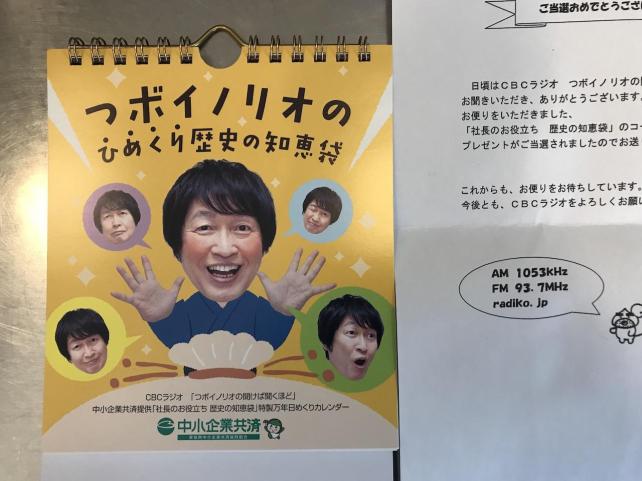 つボイノリオの
ひめくり歴史の知恵袋
CBCラジオ 「つボイノリオの聞けば聞くほど」
中小企業共済提供「社長のお役立ち 歴史の知恵袋」特製万年日めくりカレンダー
中小企業共済
ご当選おめでとうござ
日頃はCBCラジオ つボイノリオの
お聞きいただき、ありがとうございます
お便りをいただきました、
「社長のお役立ち 歴史の知恵袋」のコ
プレゼントがご当選されましたのでお送
これからも、お便りをお待ちしています。
今後とも、CBCラジオをよろしくお願
AM 1053kHz
FM 93.7MHz
radiko.jp